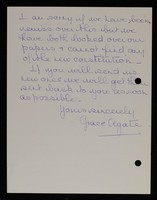 I am sorry if we have been
remiss over this but we
have both looked over our
papers & cannot find any
of the new constitution.
If you will send us
new ones we will get them
sent back to you as soon
as possible.
Yours sincerely
Grace